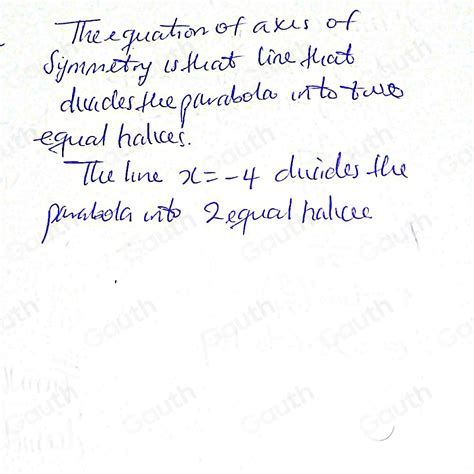 The equation of axis of
Symmetry is that line that
divides the parabola into two
equal halves.
The line x = -4 divides the
parabola into 2 equal halves
Gauth
Gauth
Gauth
Gauth
Gauth
Gauth
Gauth